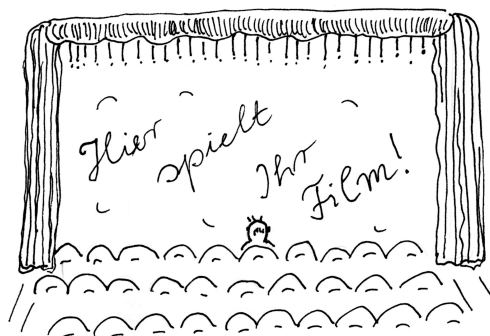 Hier spielt
Ihr Film!